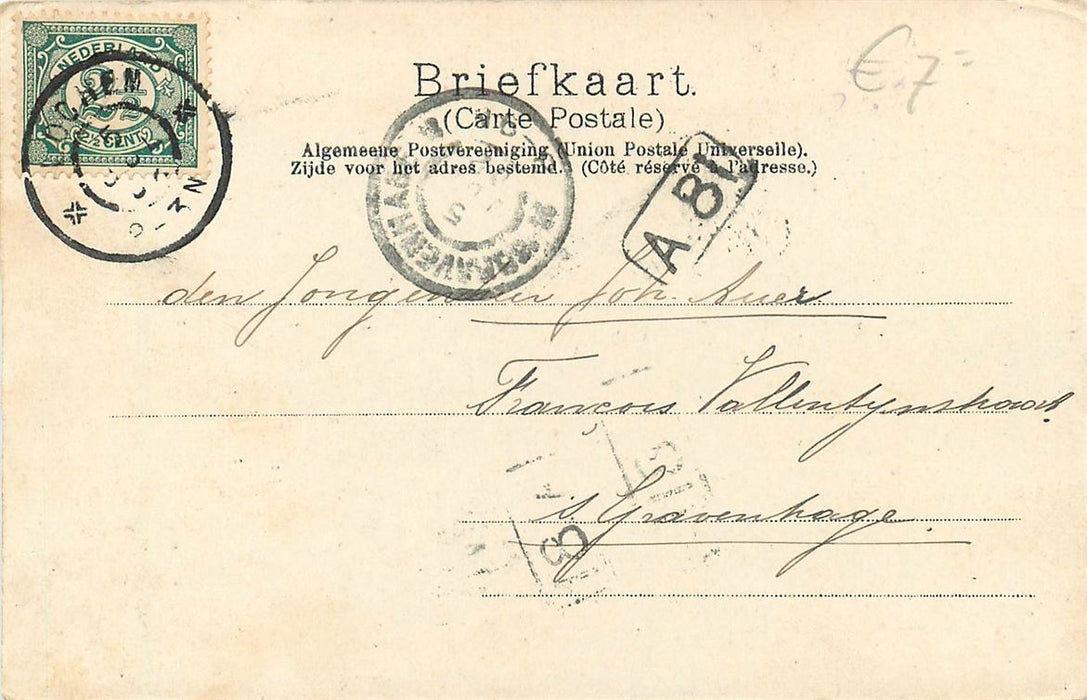 NEDERLAND
2½
2½ CENT
€ 7-
Briefkaart.
(Carte Postale)
Algemeene Postvereeniging (Union Postale Universelle).
Zijde voor het adres bestemd. (Côté réservé à l'adresse.)
'S GRAVENHAGE
A 81
den Jongeheer Joh. Auer
François Vallentijnstraat
's Gravenhage.